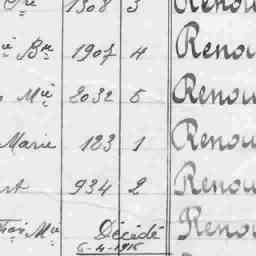 1308 3 Renou
Bne 1907 4 Renou
Mie 2032 5 Renou
Marie 123 1 Renou
rt 934 2 Renou
Mie Décédé Renou
5-4-1915